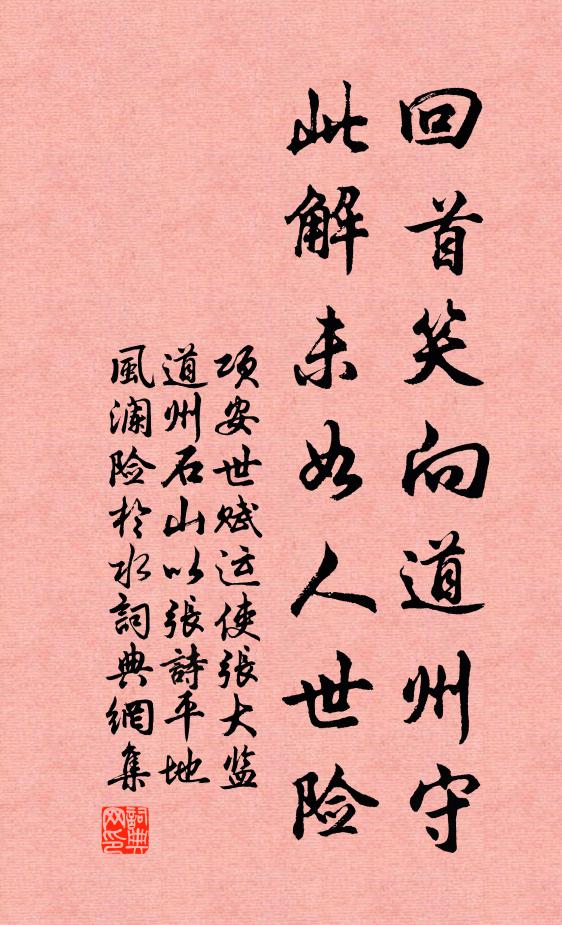 回首笑向道州守
此解未如人世险
项安世赋运使张大监
道州石山以張詩平地
風澜险扵水詞典網集
詞典
网印